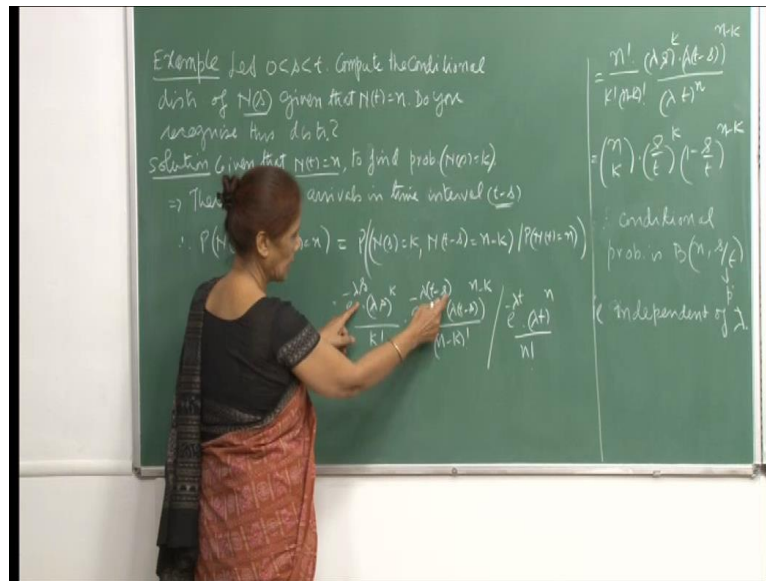 Example Let 0<s<t. Compute the conditional
distr. of N(s) given that N(t)=n. Do you
recognise this distr.?
Solution Given that N(t)=n, to find prob(N(s)=k).
⇒ arrivals in time interval (t-s)
∴ P(N =n) = P((N(s)=k, N(t-s)=n-k)/P(N(t)=n))
= e^{-λs}·(λs)^k / k! · e^{-λ(t-s)}(λ(t-s))^{n-k} / (n-k)! / e^{-λt}·(λt)^n / n!
= n!/(k!(n-k)!) (λs)^k·(λ(t-s))^{n-k} / (λt)^n
= (n k)·(s/t)^k (1-s/t)^{n-k}
∴ conditional
prob. is B(n, s/t)
↓
p
independent of λ.